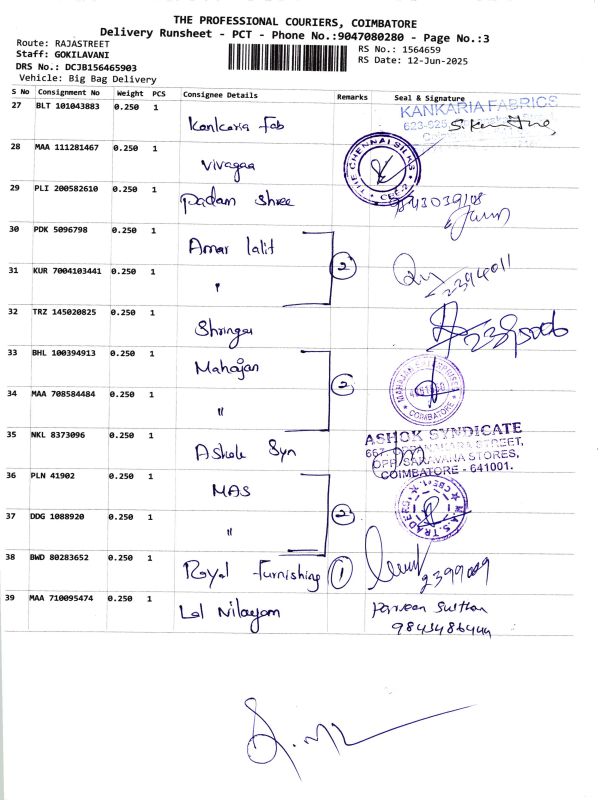 THE PROFESSIONAL COURIERS, COIMBATORE
Delivery Runsheet - PCT - Phone No.:9047080280 - Page No.:3
Route: RAJASTREET
Staff: GOKILAVANI
DRS No.: DCJB156465903
Vehicle: Big Bag Delivery
RS No.: 1564659
RS Date: 12-Jun-2025
S No Consignment No Weight PCS Consignee Details Remarks Seal & Signature
27 BLT 101043883 0.250 1 Kankaria Fab KANKARIA FABRICS
28 MAA 111281467 0.250 1 Vivagaa THE CHENNAI SILKS CBE-2
29 PLI 200582610 0.250 1 Padam Shree
30 PDK 5096798 0.250 1 Amar lalit 2
31 KUR 7004103441 0.250 1 "
32 TRZ 145020825 0.250 1 Shringar
33 BHL 100394913 0.250 1 Mahajan 2 COIMBATORE
34 MAA 708584484 0.250 1 "
35 NKL 8373096 0.250 1 Ashok Syn ASHOK SYNDICATE
STREET,
OPP. SARAVANA STORES,
COIMBATORE - 641001.
36 PLN 41902 0.250 1 MAS 2 M.A.S. TRADERS
37 DDG 1088920 0.250 1 "
38 BWD 80283652 0.250 1 Royal Furnishing 1
39 MAA 710095474 0.250 1 Lal Nilayam